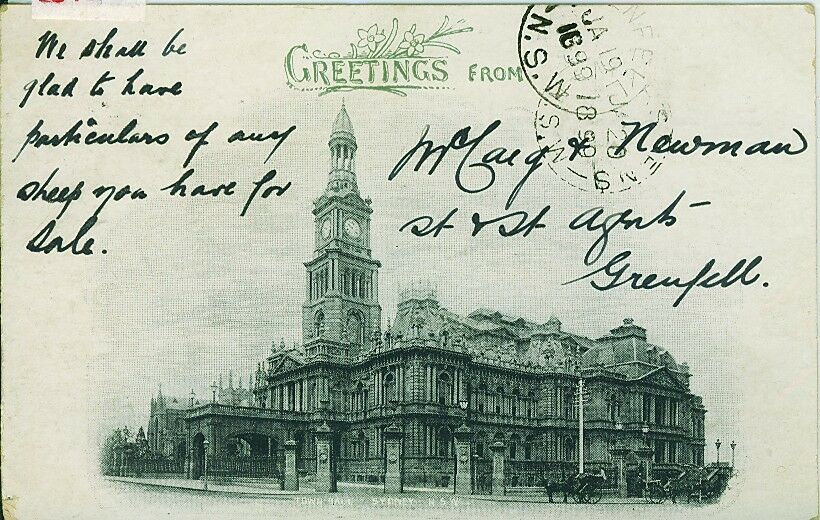 GREETINGS FROM
We shall be
glad to have
particulars of any
sheep you have for
Sale.
McCaig & Newman
St & St Agents
Grenfell.
N.S.W
JA 19
18 99
JA 20
1899
N.S.
TOWN HALL SYDNEY N.S.W.